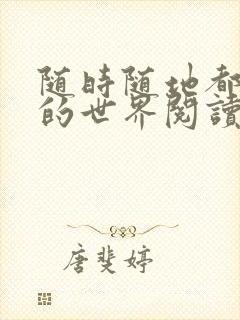 随時随地都
的世界閱讀
唐斐婷